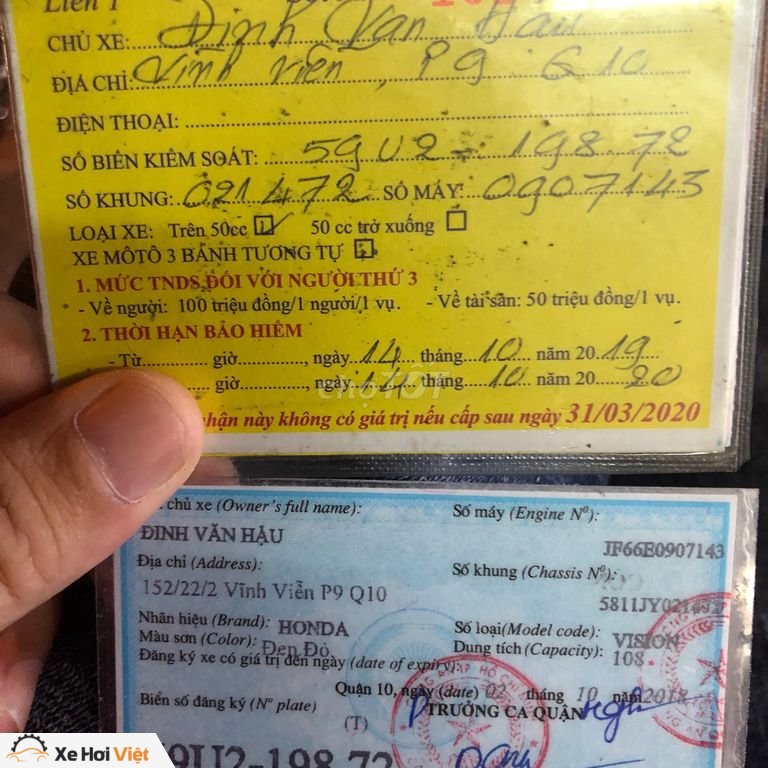 Liên 1
CHỦ XE: Đinh Văn Hậu
ĐỊA CHỈ: Vĩnh Viễn, P9 Q10
ĐIỆN THOẠI:
SỐ BIỂN KIỂM SOÁT: 59U2 - 198.72
SỐ KHUNG: 021472 SỐ MÁY: 0907143
LOẠI XE: Trên 50cc 50 cc trở xuống
XE MÔTÔ 3 BÁNH TƯƠNG TỰ
1. MỨC TNDS ĐỐI VỚI NGƯỜI THỨ 3
- Về người: 100 triệu đồng/1 người/1 vụ. - Về tài sản: 50 triệu đồng/1 vụ.
2. THỜI HẠN BẢO HIỂM
- Từ giờ, ngày 14 tháng 10 năm 2019
giờ, ngày 14 tháng 10 năm 2020
chợTỐT
nhận này không có giá trị nếu cấp sau ngày 31/03/2020
chủ xe (Owner's full name): Số máy (Engine Nº):
ĐINH VĂN HẬU JF66E0907143
Địa chỉ (Address): Số khung (Chassis Nº):
152/22/2 Vĩnh Viễn P9 Q10 5811JY021472
Nhãn hiệu (Brand): HONDA Số loại(Model code): VISION
Màu sơn (Color): Đen Đỏ Dung tích (Capacity): 108
Đăng ký xe có giá trị đến ngày (date of expiry):
Quận 10, ngày (date) 02 tháng 10 năm 2018
Biển số đăng ký (Nº plate) TRƯỞNG CA QUẬN
(T)
9U2-198.72
Xe Hơi Việt